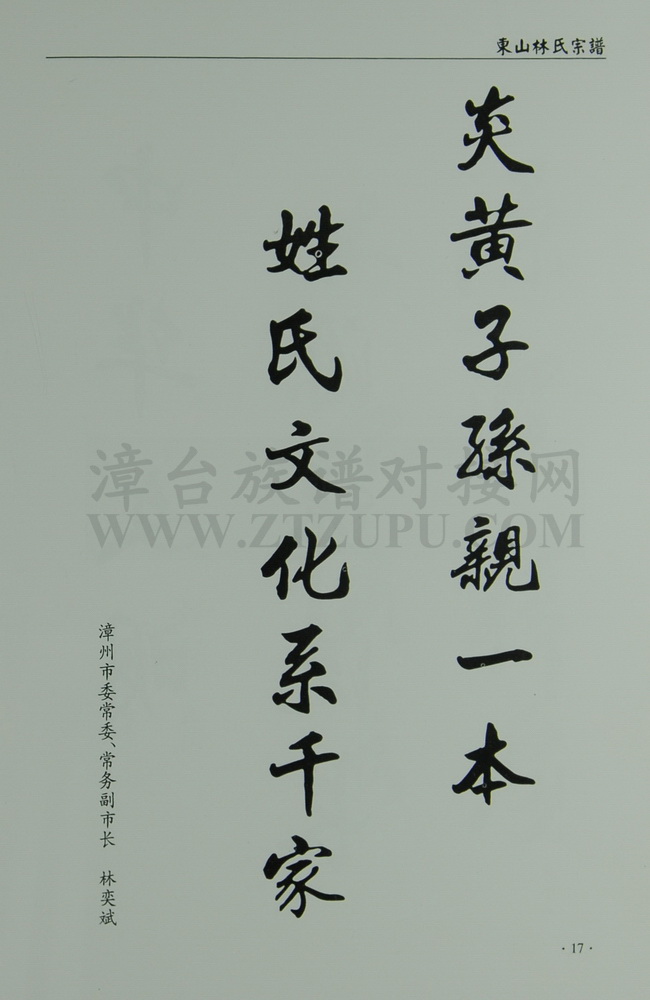 東山林氏宗譜
炎黄子孫親一本
姓氏文化系千家
漳州市委常委、常务副市长 林奕斌
漳台族谱对接网
WWW.ZTZUPU.COM
·17·